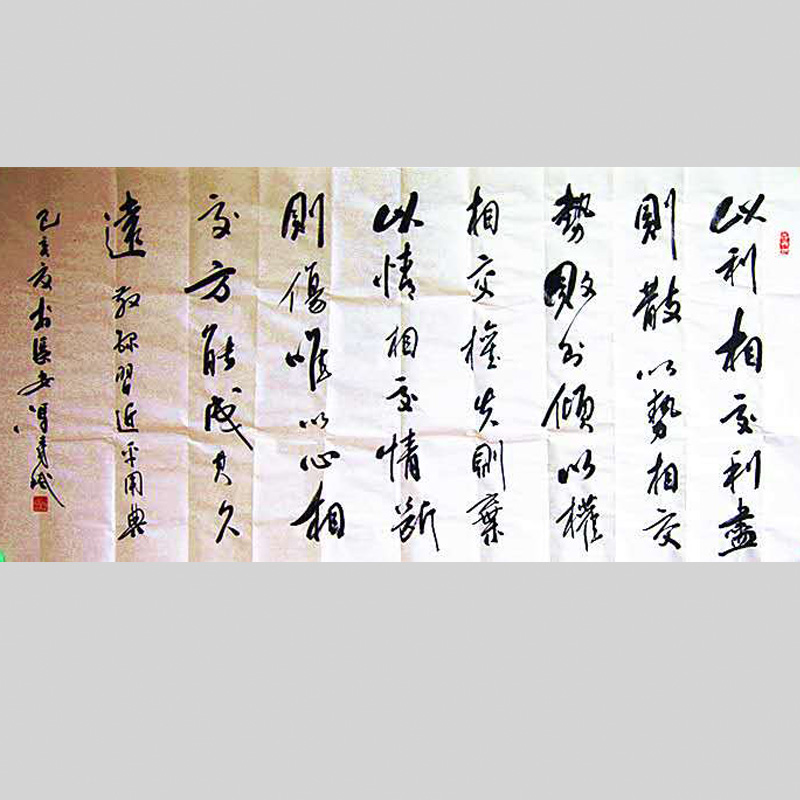 以利相交利盡
則散以勢相交
勢敗則傾以權
相交權失則棄
以情相交情斷
則傷唯以心相
交方能成其久
遠 敬録習近平用典
己亥夏書長安馮